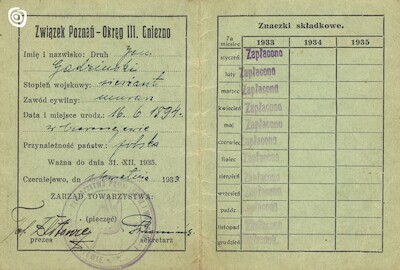 Związek Poznań - Okręg III. Gniezno
Imię i nazwisko: Druh Jan
Stopień wojskowy:
Zawód cywilny: murarz
Data i miejsce urodz.: 16. 6. 1894.
Przynależność państw.: polska
Ważna do dnia 31. XII. 1935.
Czerniejewo, kwietnia 1933
ZARZĄD TOWARZYSTWA:
(pieczęć)
prezes sekretarz
Znaczki składkowe.
Za miesiąc 1933 1934 1935
styczeń Zapłacono
luty Zapłacono
marzec Zapłacono
kwiecień Zapłacono
maj Zapłacono
czerwiec Zapłacono
lipiec Zapłacono
sierpień Zapłacono
wrzesień Zapłacono
paźdz. Zapłacono
listopad Zapłacono
grudzień